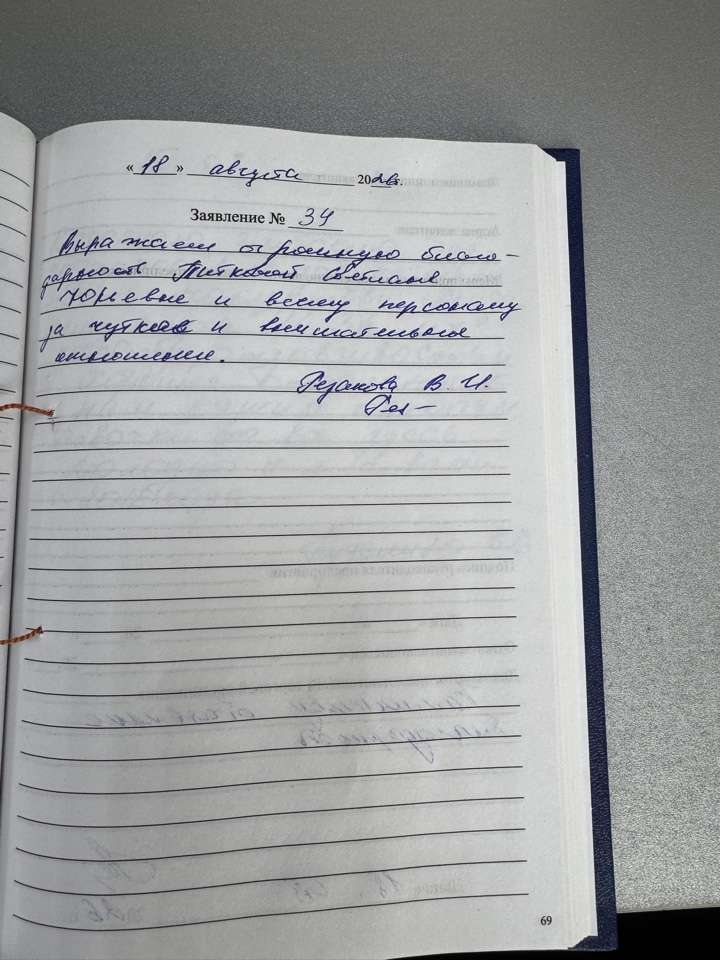 «18» августа 2026г.
Заявление № 34
Выражаем огромную благо-
дарность Титковой Светлане
Юрьевне и всему персоналу
за чуткое и внимательное
отношение.
Резакова В. И.
69